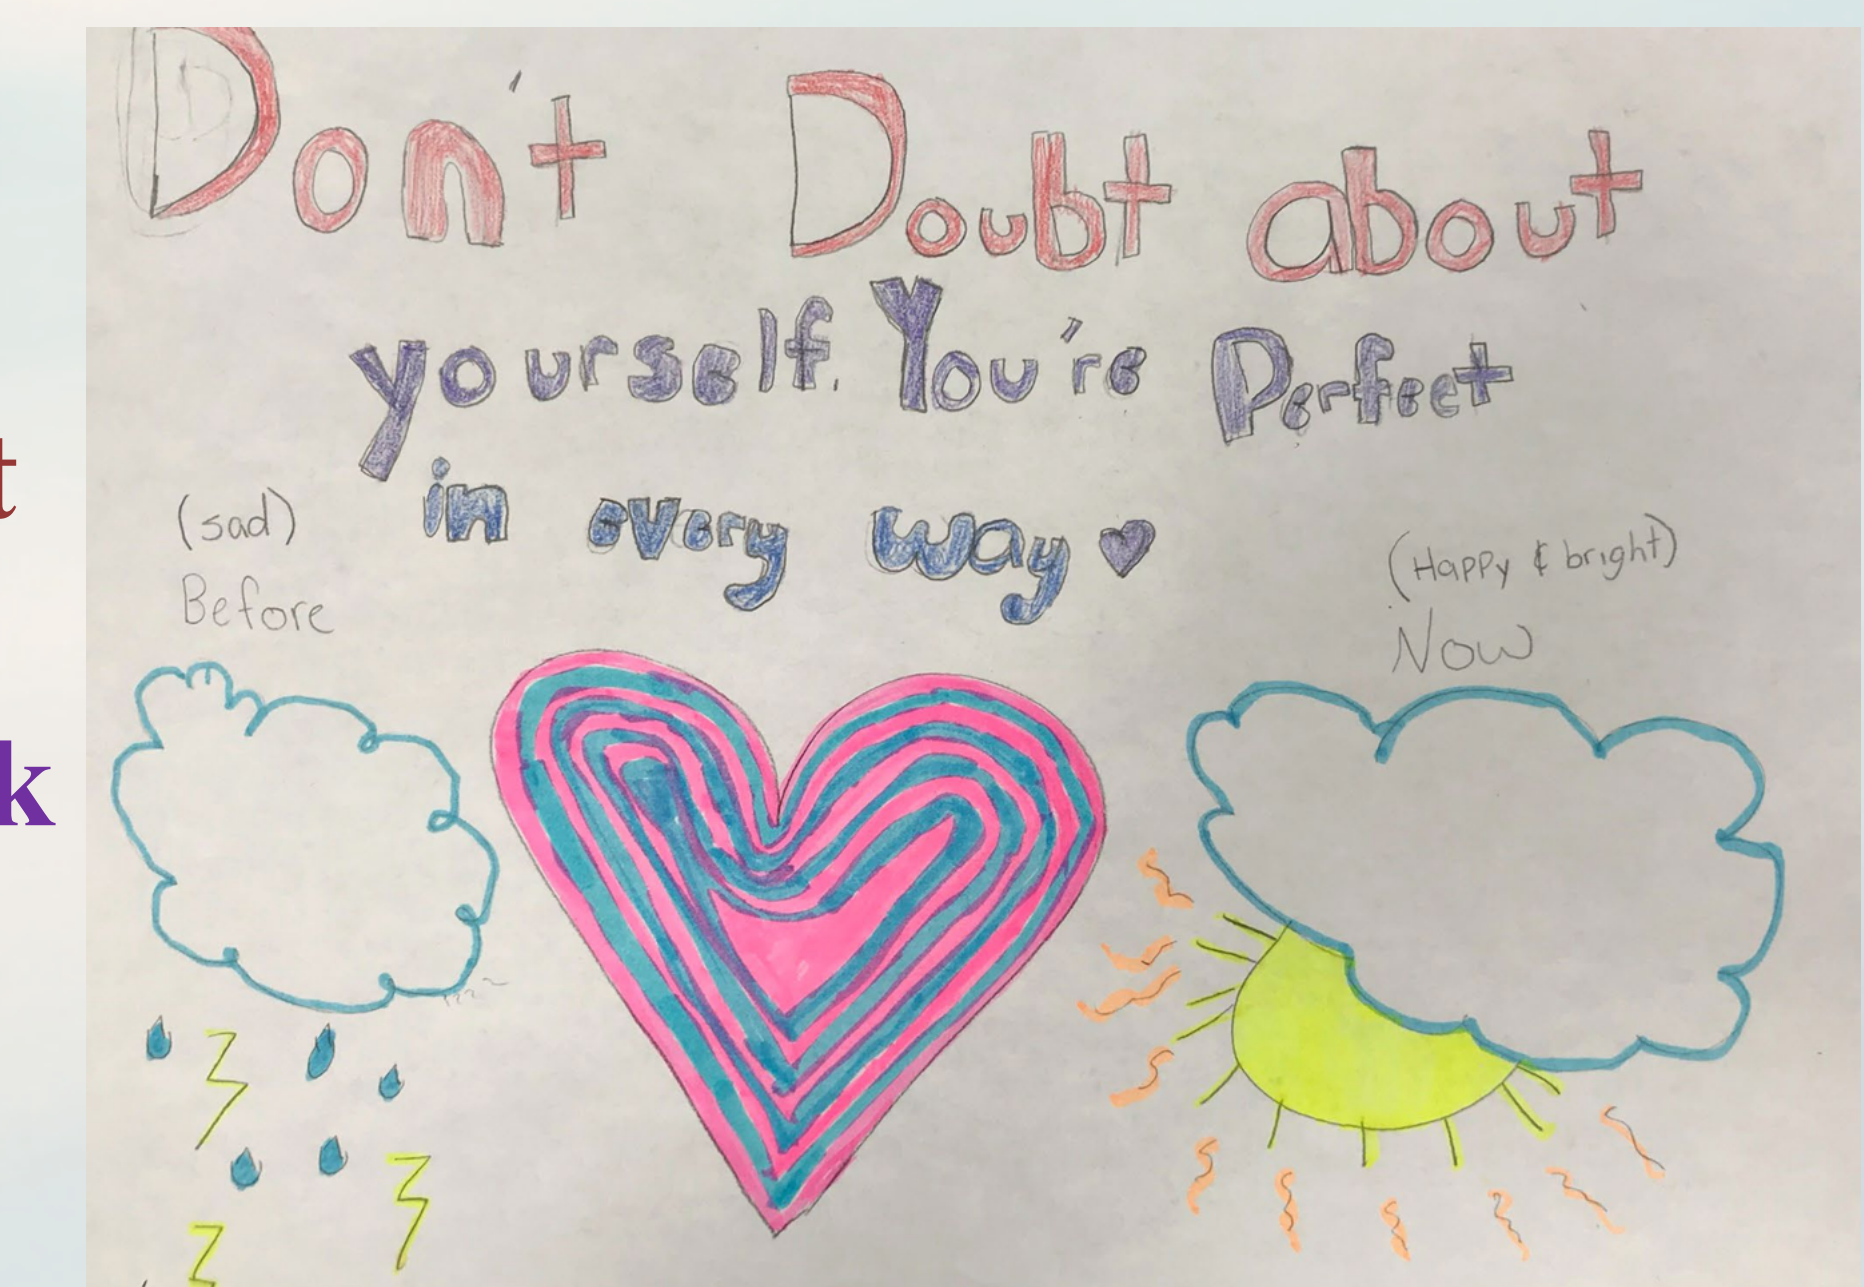 Don't Doubt about
yourself. You're Perfect
in every way
(sad)
Before
(Happy & bright)
Now
t
k